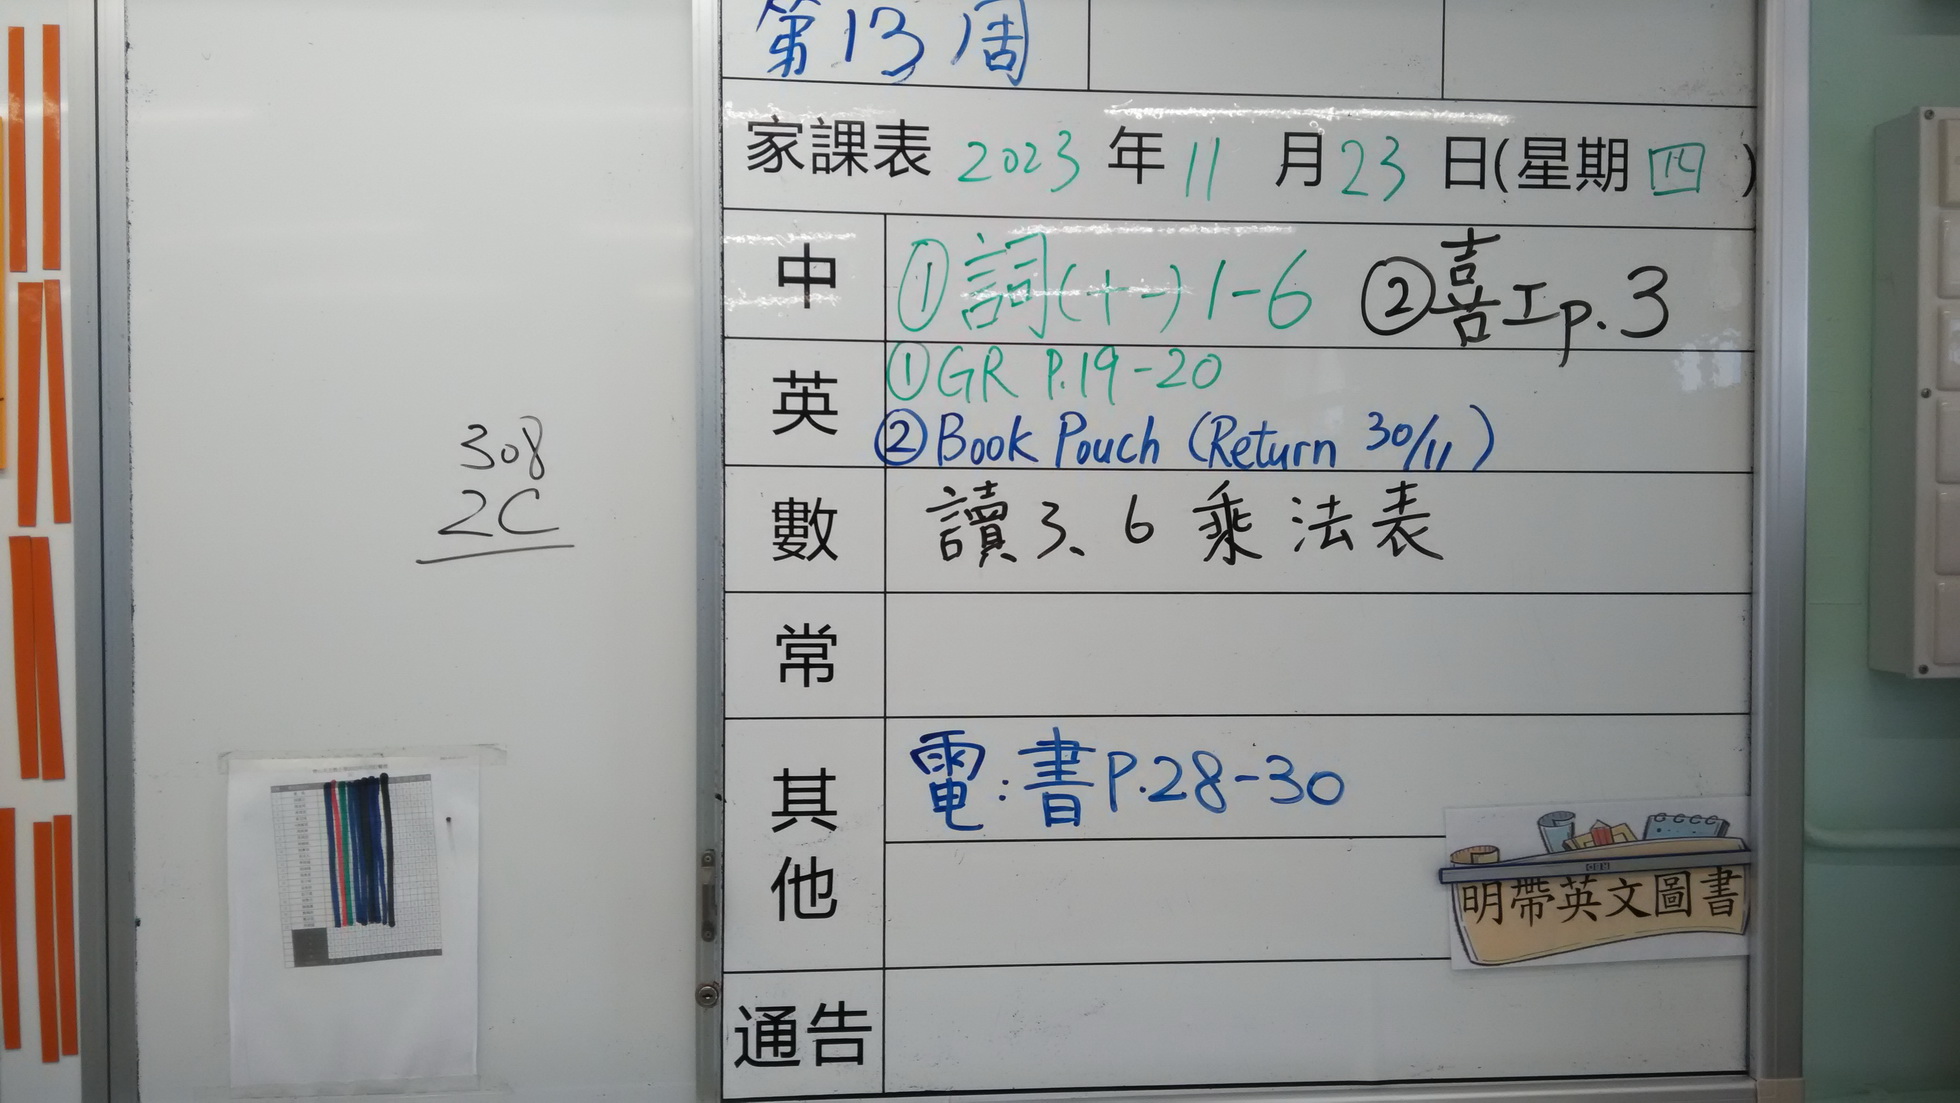 第13周
家課表 2023 年 11 月 23 日(星期 四 )
中 ①詞(十一)1-6 ②喜工p.3
英 ①GR P.19-20
②Book Pouch (Return 30/11)
數 讀3、6 乘法表
常
其他 電:書P.28-30
明帶英文圖書
通告
308
2C